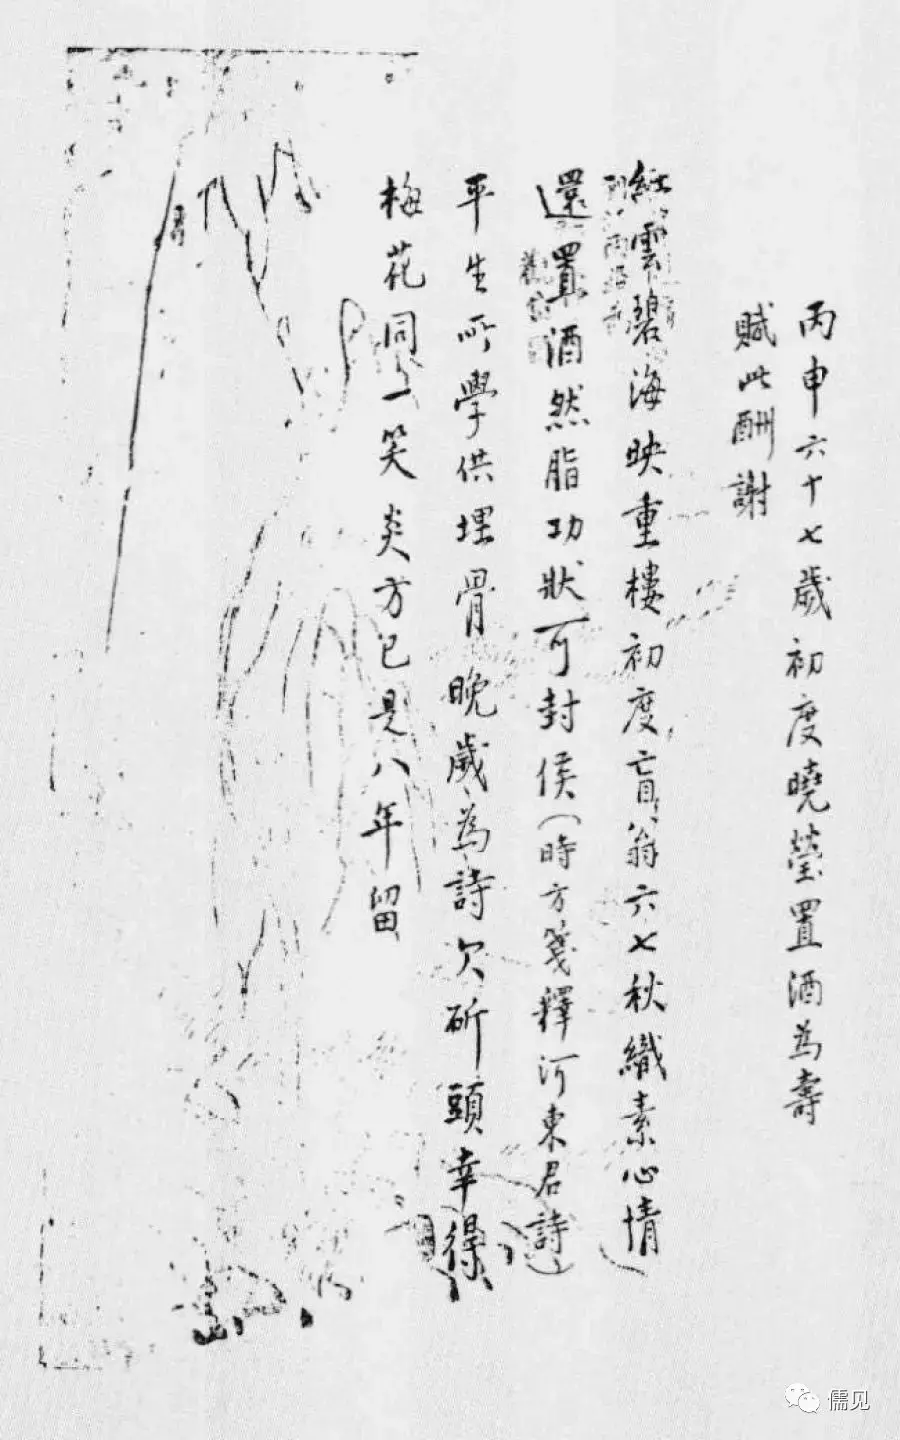 丙申六十七歲初度曉瑩置酒為壽
賦此酬謝
紅雲碧海映重樓初度盲翁六七秋織素心情
還置酒然脂功狀可封侯（時方箋釋河東君詩）
平生所學供埋骨晚歲為詩欠斫頭幸得
梅花同一笑炎方已是八年留
儒见